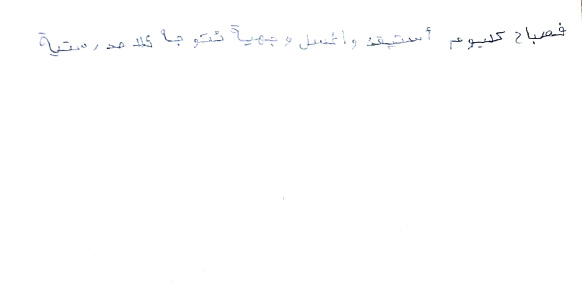 فصباح كليوم أستيقذ واغسل وجهية نتوجا للا مدرستية